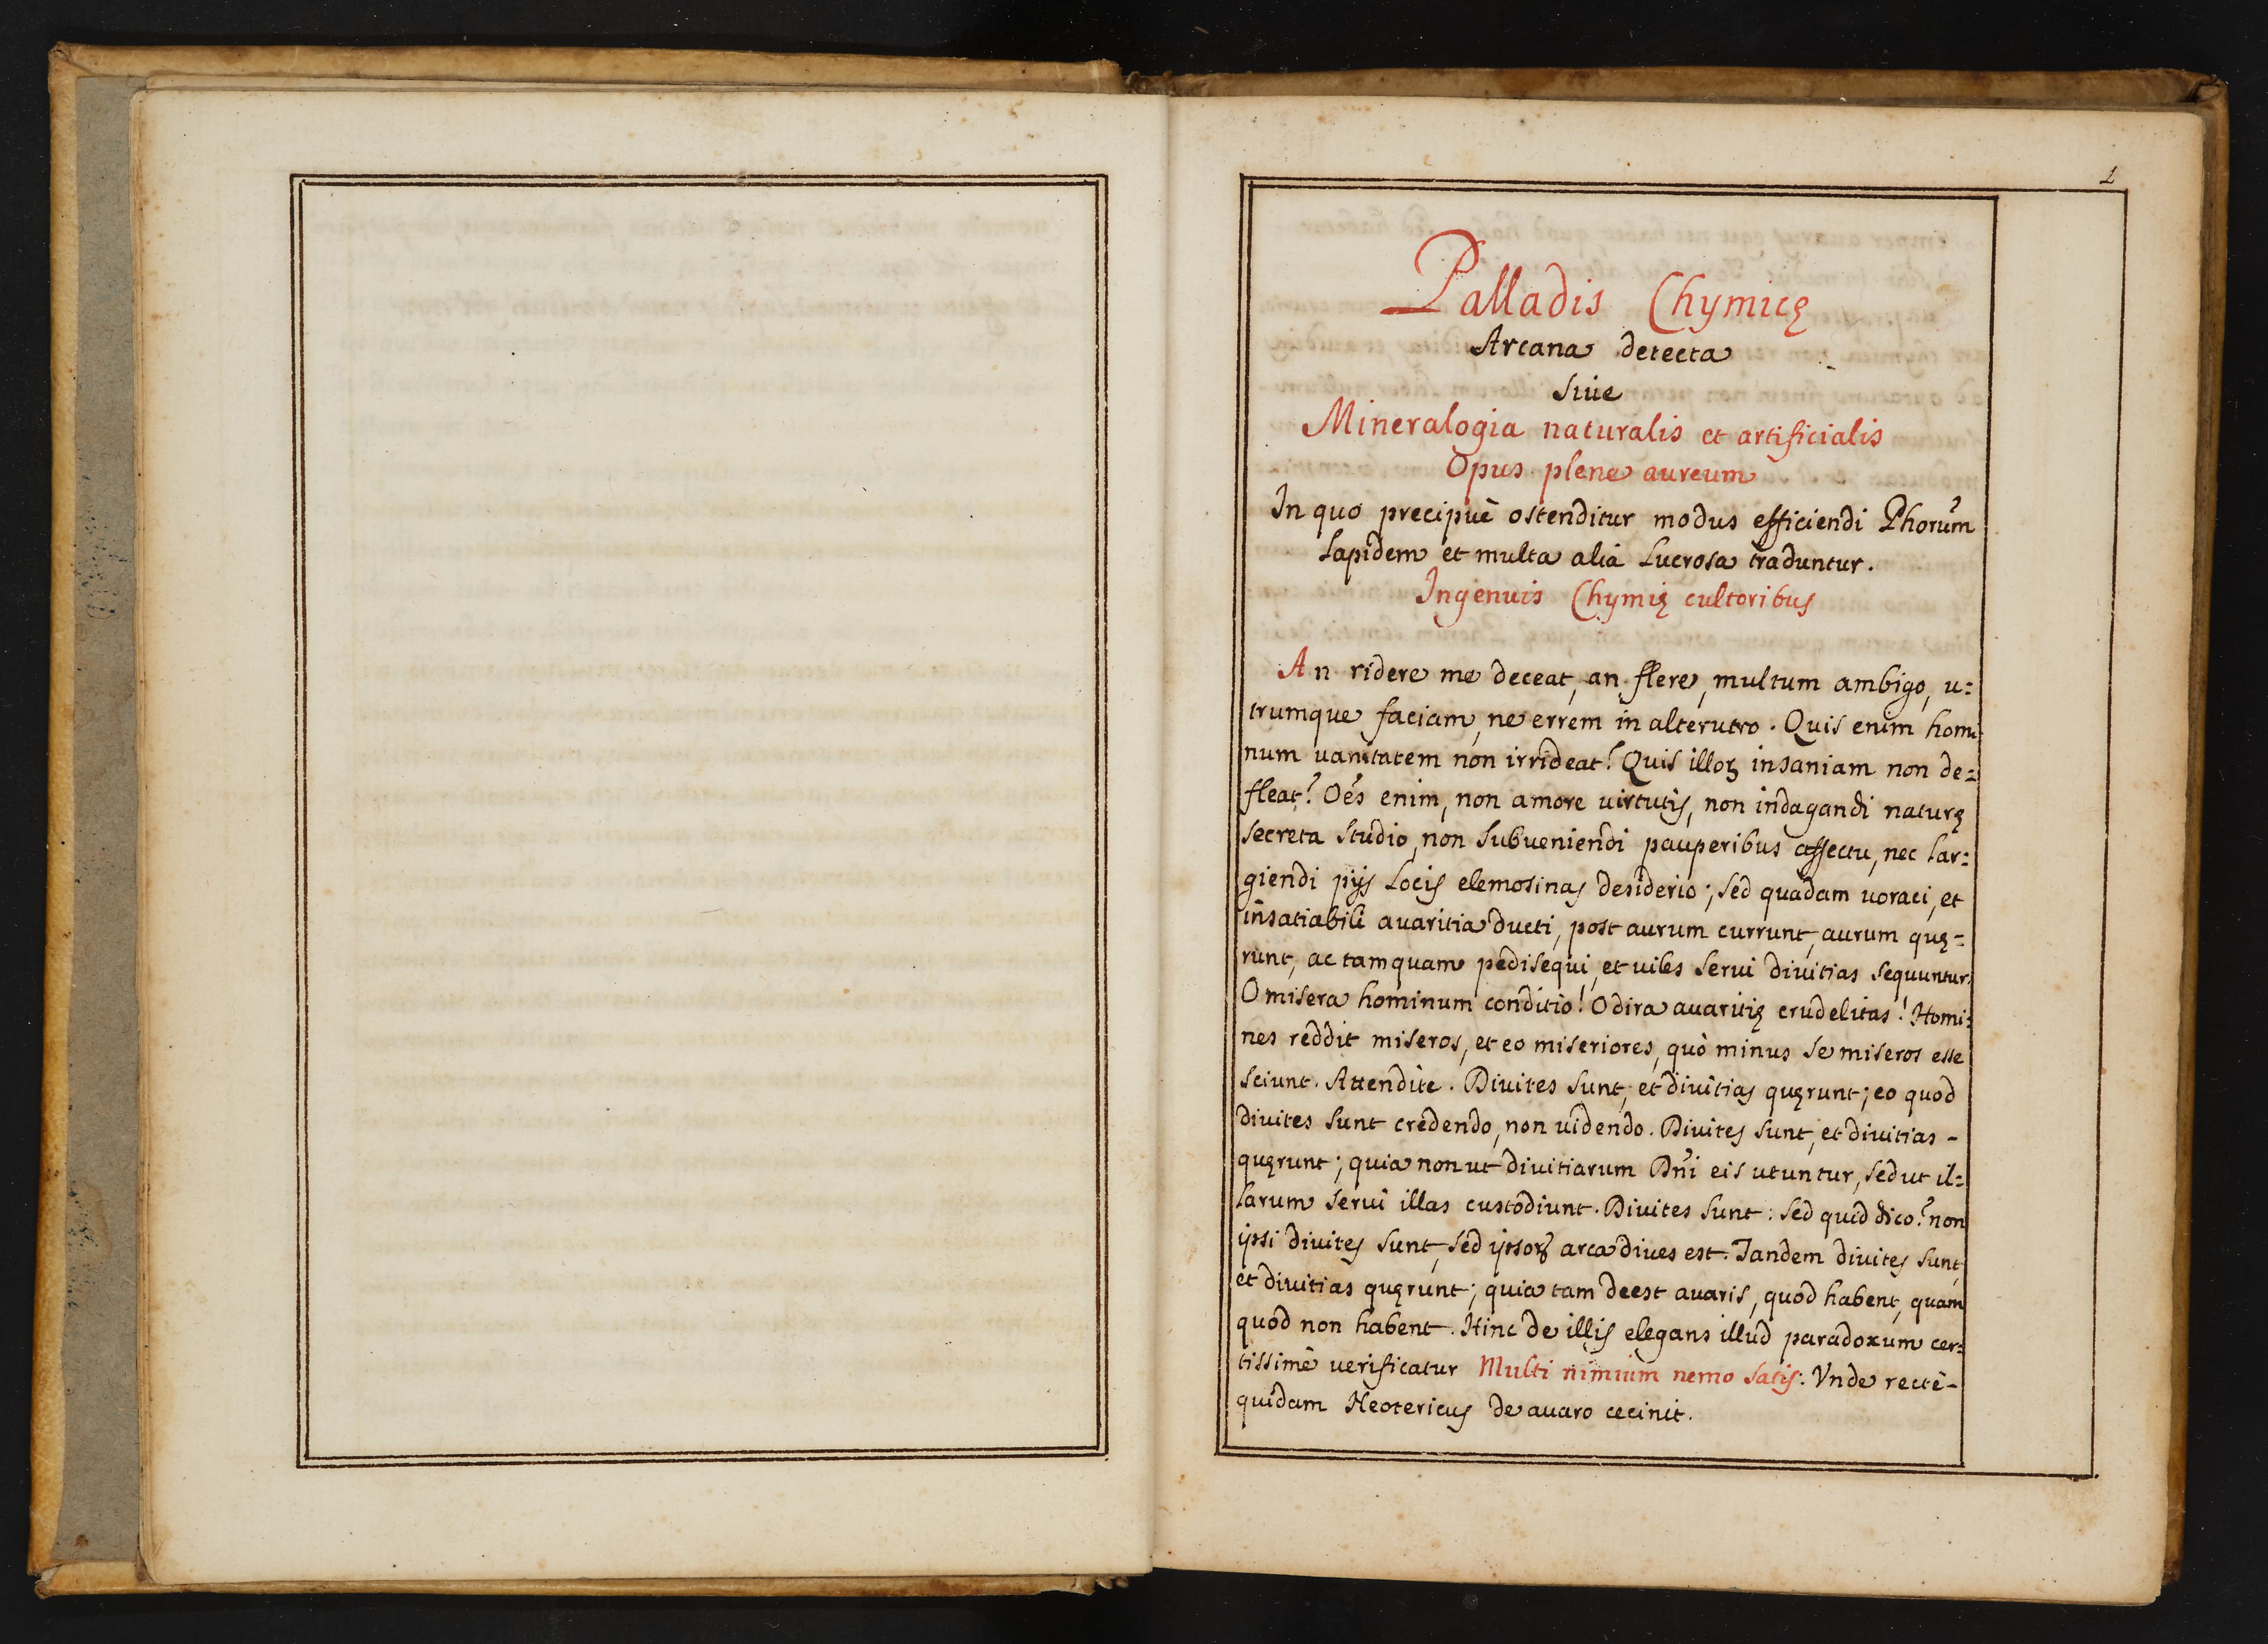 1
Palladis Chymicę
Arcana detecta
siue
Mineralogia naturalis et artificialis
Opus plene aureum
In quo precipuè ostenditur modus efficiendi Phorum̃
Lapidem et multa alia Lucrosa traduntur.
Ingenuis Chymię cultoribus
An ridere me deceat, an flere, multum ambigo, u=
trumque faciam, ne errem in alterutro. Quis enim homi
num uanitatem non irrideat? Quis illoꝝ insaniam non de=
fleat? Oẽs enim, non amore uirtutis, non indagandi naturę
secreta studio, non subueniendi pauperibus affectu, nec lar=
giendi pijs Locis elemosinas desiderio; sed quadam uoraci, et
insatiabili auaritia ducti, post aurum currunt, aurum quę=
runt, ac tamquam pedisequi, et uiles serui diuitias sequuntur.
O misera hominum conditio! O dira auaritię crudelitas! Homi=
nes reddit miseros, et eo miseriores, quò minus se miseros esse
sciunt. Attendite. Diuites sunt, et diuitias quęrunt; eo quod
diuites sunt credendo, non uidendo. Diuites sunt, et diuitias -
quęrunt; quia non ut diuitiarum Dñi eis utuntur, sed ut il=
larum serui illas custodiunt. Diuites sunt: sed quid dico? non
ipsi diuites sunt, sed ipsoꝝ arca diues est. Tandem diuites sunt,
et diuitias quęrunt; quia tam deest auaris, quod habent, quam
quod non habent. Hinc de illis elegans illud paradoxum cer=
tissimè uerificatur Multi nimium nemo satis: Vnde rectè -
quidam Neotericus de auaro cecinit.